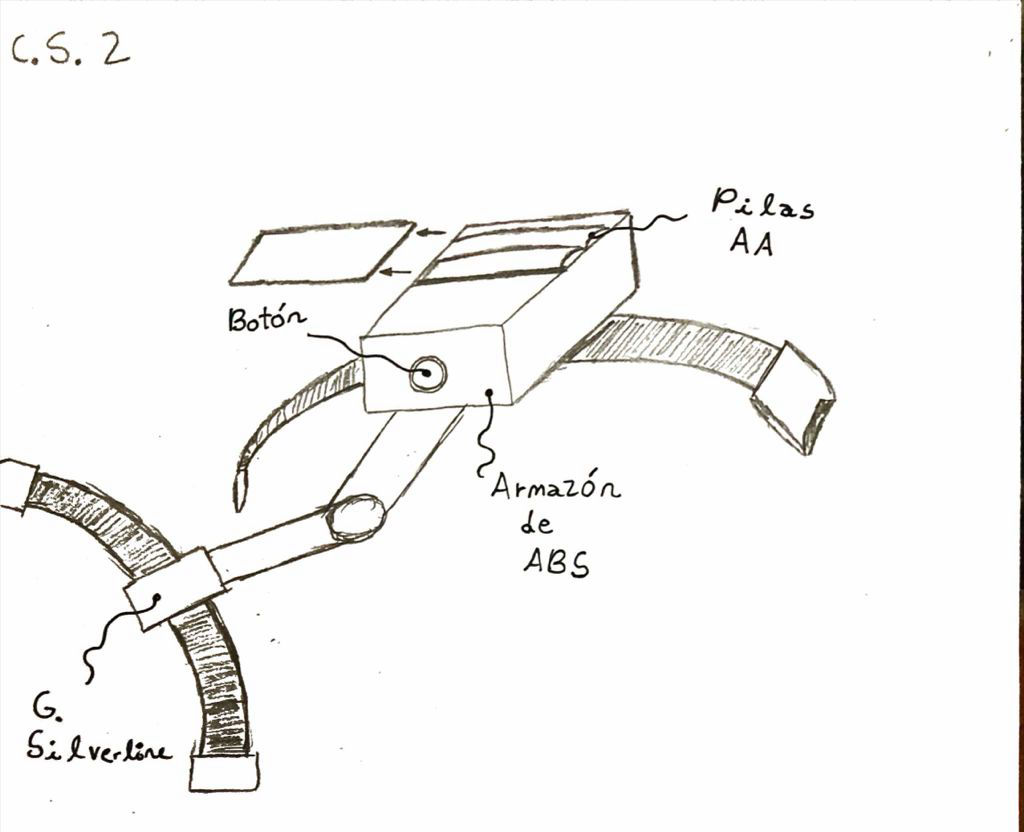 C.S. 2
Pilas
AA
Botón
Armazón
de
ABS
G.
Silverline